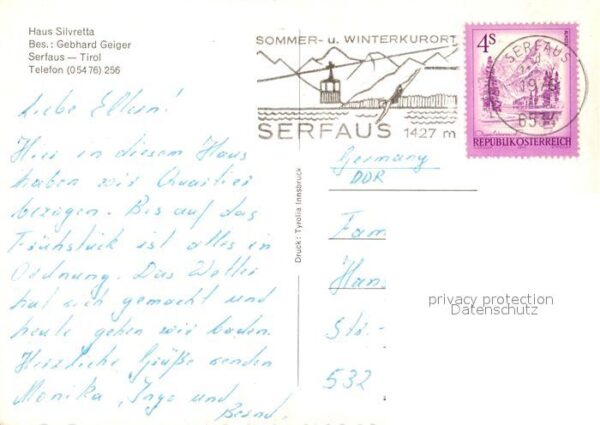 Haus Silvretta
Bes.: Gebhard Geiger
Serfaus — Tirol
Telefon (05476) 256
SOMMER- u. WINTERKURORT
SERFAUS 1427 m
SERFAUS
4S
REPUBLIK ÖSTERREICH
Liebe Eltern!
Hier in diesem Haus
haben wir Quartier
bezogen. Bis auf das
Frühstück ist alles in
Ordnung. Das Wetter
hat sich gemacht und
heute gehen wir baden.
Herzliche Grüße senden
Monika, Ingo und
Bernd.
Druck: Tyrolia Innsbruck
Germany
DDR
Fam
Han
532
privacy protection
Datenschutz